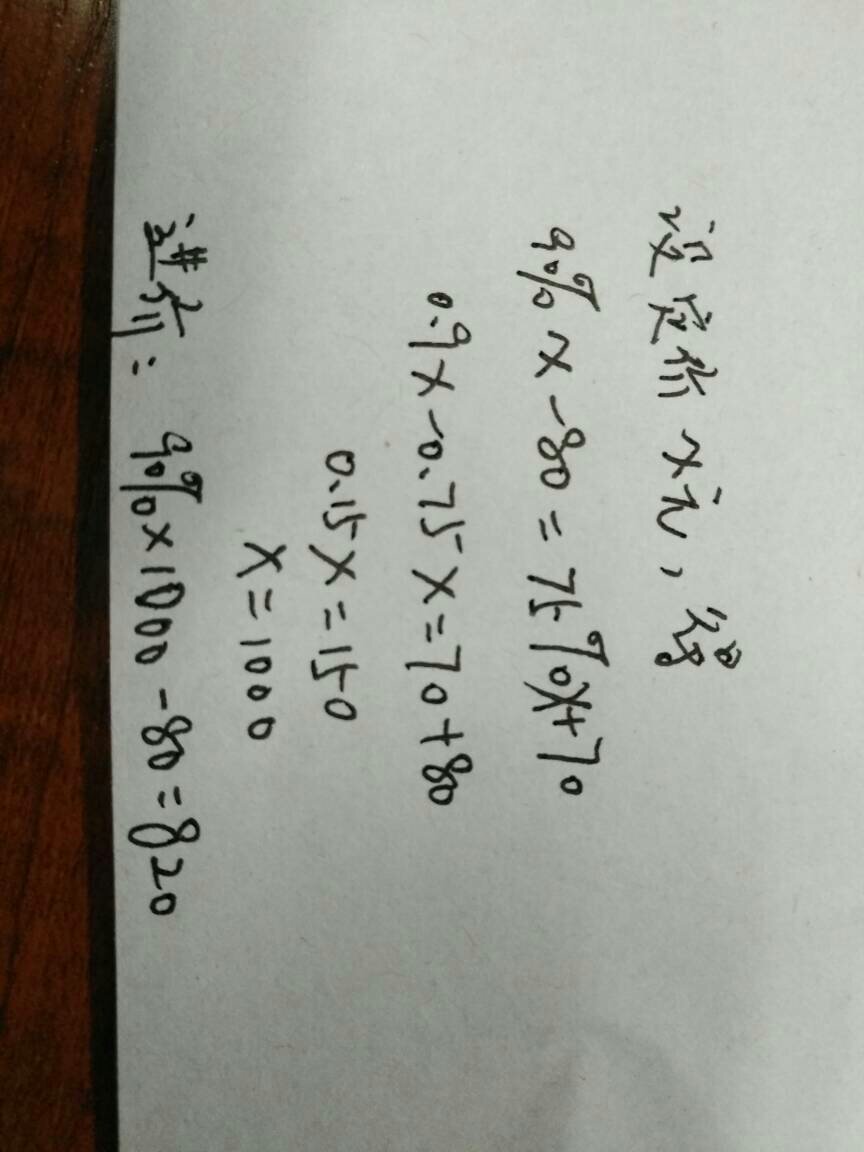 设定价x元，得
90%x-80=75%x+70
0.9x-0.75x=70+80
0.15x=150
x=1000
进价：90%×1000-80=820